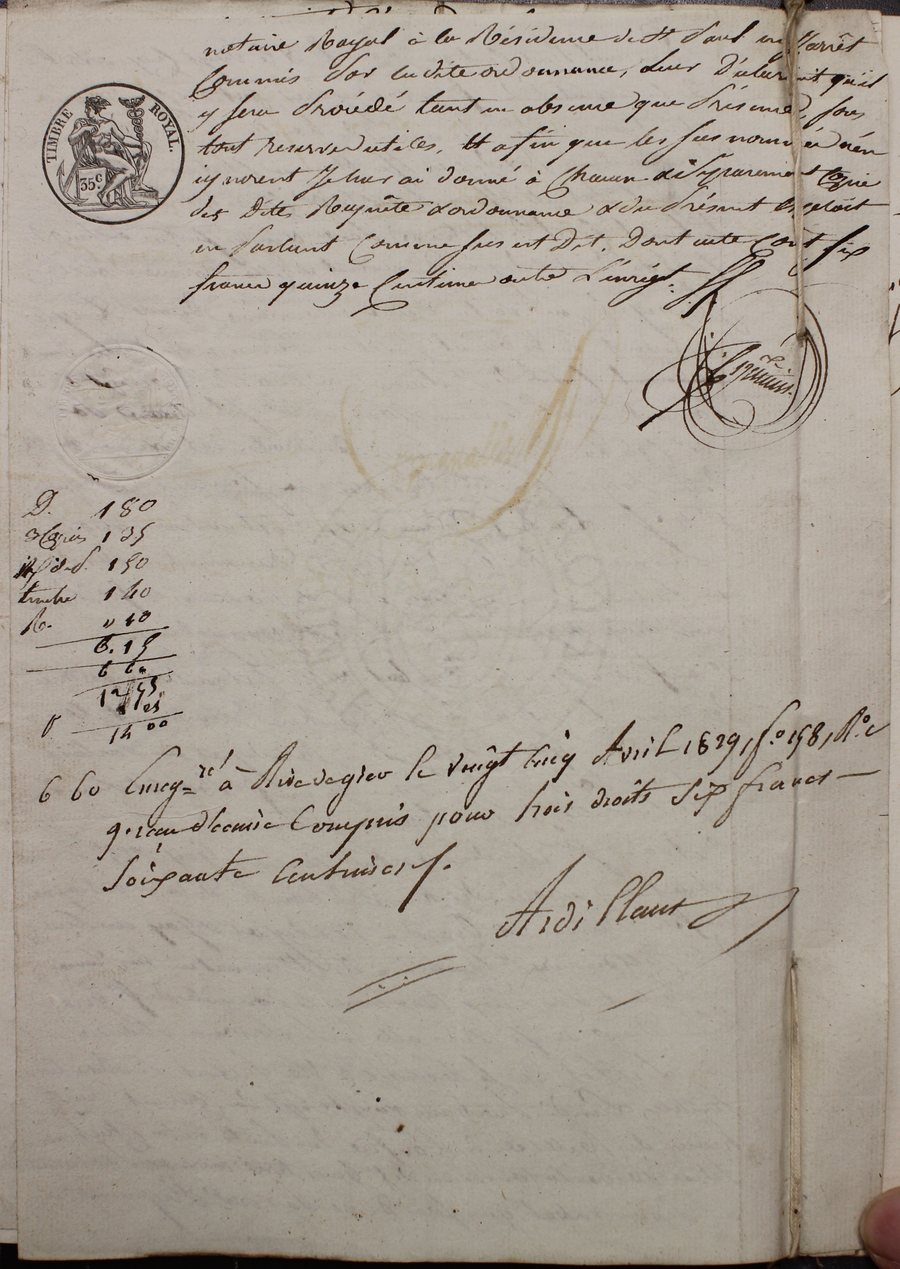 notaire Royal à la Résidence de St Paul en Jarrêt
Commis Par la dite ordonnance, leur Déclarant qu'il
y sera Procédé tant en absence que Présence, sous
tout reserves utiles, Et afin que les sus nommés n'en
ignorent Je leur ai donné à Chacun séparement Copie
des Dittes Requête & ordonnance & du Présent Exploit
en Parlant Comme sus est Dit. Dont acte Coût six
francs quinze Centimes outre l'enregt.
TIMBRE ROYAL.
35 C
D. 180
3 Copies 135
150
timbre 140
R. " 10
6. 15
6 60
12 75
1 25
14 00
6 60 Enregré à Rive de gier le vingt cinq Avril 1829, fo. 158, Ro. c
9. reçu décime Compris pour trois droits Six francs
Soixante Centimes f.
Ardillaut